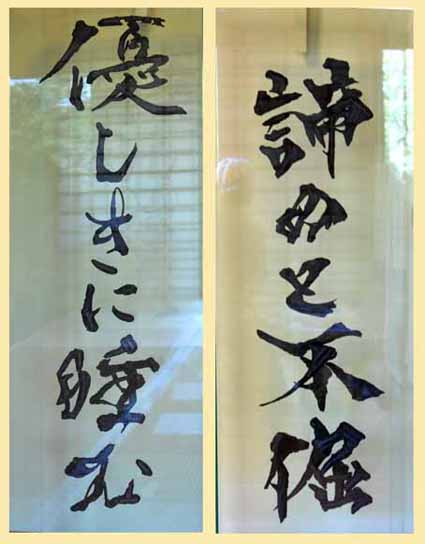 諦めと不倔
優しきに睡む